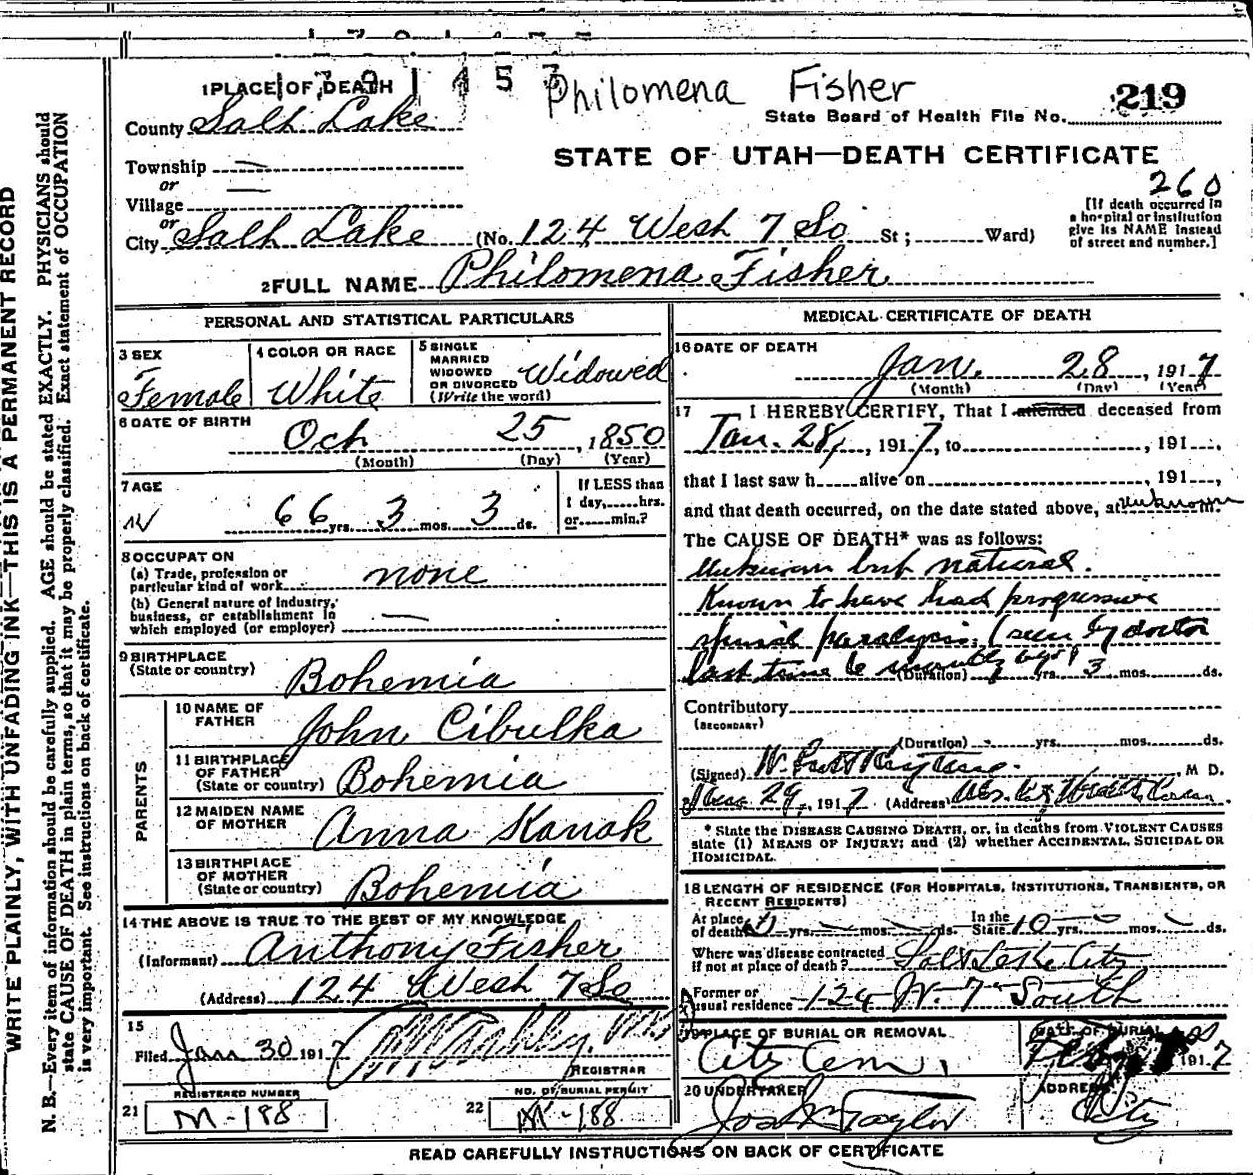 1791457
Philomena Fisher
219
State Board of Health File No.
STATE OF UTAH—DEATH CERTIFICATE
260
[If death occurred in
a hospital or institution
give its NAME instead
of street and number.]
1 PLACE OF DEATH
County Salt Lake
Township —
or
Village —
or
City Salt Lake (No. 124 West 7 So St; Ward)
2 FULL NAME Philomena Fisher
PERSONAL AND STATISTICAL PARTICULARS
3 SEX
Female
4 COLOR OR RACE
White
5 SINGLE
MARRIED
WIDOWED
OR DIVORCED
(Write the word)
Widowed
6 DATE OF BIRTH
Oct 25, 1850
(Month) (Day) (Year)
7 AGE
66 yrs. 3 mos. 3 ds.
If LESS than
1 day, hrs.
or min.?
8 OCCUPATION
(a) Trade, profession or
particular kind of work none
(b) General nature of industry,
business, or establishment in
which employed (or employer) —
9 BIRTHPLACE
(State or country) Bohemia
PARENTS
10 NAME OF
FATHER John Cibulka
11 BIRTHPLACE
OF FATHER
(State or country) Bohemia
12 MAIDEN NAME
OF MOTHER Anna Kanak
13 BIRTHPLACE
OF MOTHER
(State or country) Bohemia
14 THE ABOVE IS TRUE TO THE BEST OF MY KNOWLEDGE
(Informant) Anthony Fisher
(Address) 124 West 7 So
15
Filed Jan 30 1917
REGISTRAR
REGISTERED NUMBER
21 M-188
NO. OF BURIAL PERMIT
22 M-188
MEDICAL CERTIFICATE OF DEATH
16 DATE OF DEATH
Jan. 28, 1917
(Month) (Day) (Year)
17 I HEREBY CERTIFY, That I attended deceased from
Jan. 28, 1917, to 191
that I last saw h alive on 191
and that death occurred, on the date stated above, at unknown m.
The CAUSE OF DEATH* was as follows:
Unknown but natural.
Known to have had progressive
spinal paralysis. (seen by doctor
last time 6 months ago) (Duration) yrs. 3 mos. ds.
Contributory
(SECONDARY)
(Duration) yrs. mos. ds.
(Signed) M D.
29, 1917 (Address)
* State the DISEASE CAUSING DEATH, or, in deaths from VIOLENT CAUSES
state (1) MEANS OF INJURY; and (2) whether ACCIDENTAL, SUICIDAL OR
HOMICIDAL.
18 LENGTH OF RESIDENCE (FOR HOSPITALS, INSTITUTIONS, TRANSIENTS, OR
RECENT RESIDENTS)
At place
of death yrs. — mos. — ds. In the
State 10 yrs. — mos. — ds.
Where was disease contracted
if not at place of death? Salt Lake City
Former or
usual residence 124 W. 7 South
19 PLACE OF BURIAL OR REMOVAL
City Cem.
DATE OF BURIAL
Feb 1917
20 UNDERTAKER
Jos Wm Taylor
ADDRESS
City
READ CAREFULLY INSTRUCTIONS ON BACK OF CERTIFICATE
WRITE PLAINLY, WITH UNFADING INK—THIS IS A PERMANENT RECORD
N. B.—Every item of information should be carefully supplied. AGE should be stated EXACTLY. PHYSICIANS should
state CAUSE OF DEATH in plain terms, so that it may be properly classified. Exact statement of OCCUPATION
is very important. See instructions on back of certificate.